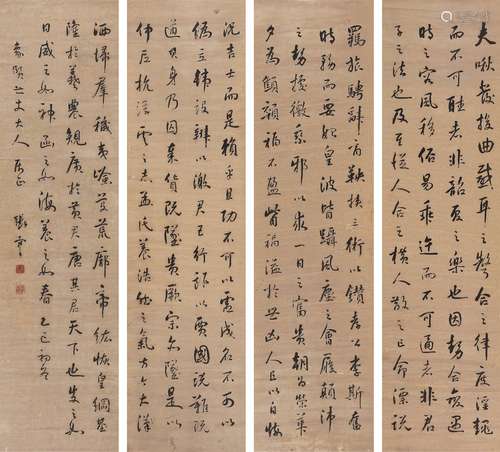 夫啾發投曲感耳之聲合之律度淫蠅
而不可聽者非韶夏之樂也因勢合變遇
時之容風移俗易乖迕而不可通者非君
子之法也及至從人合之橫人散之亡命漂說
羈旅騁辭商鞅挾三術以鑽孝公李斯奮
時務而要始皇彼皆躡風塵之會履顛沛
之勢據徼乘邪以求一日之富貴朝為榮華
夕為顦顇福不盈眥禍溢於世凶人且以自悔
況吉士而是賴乎且功不可以虛成名不可以
偽立韓設辨以激君呂行詐以賈國說難既
遒其身乃囚秦貨既墜貴厥宗亦墜是以
仲尼抗浮雲之志孟氏養浩然之氣方今大漢
洒埽羣穢夷險芟荒廓帝紘恢皇綱基
隆於羲農規廣於黃唐其君天下也炎之如
日威之如神函之如海養之如春乙巳初冬
象賢仁丈大人